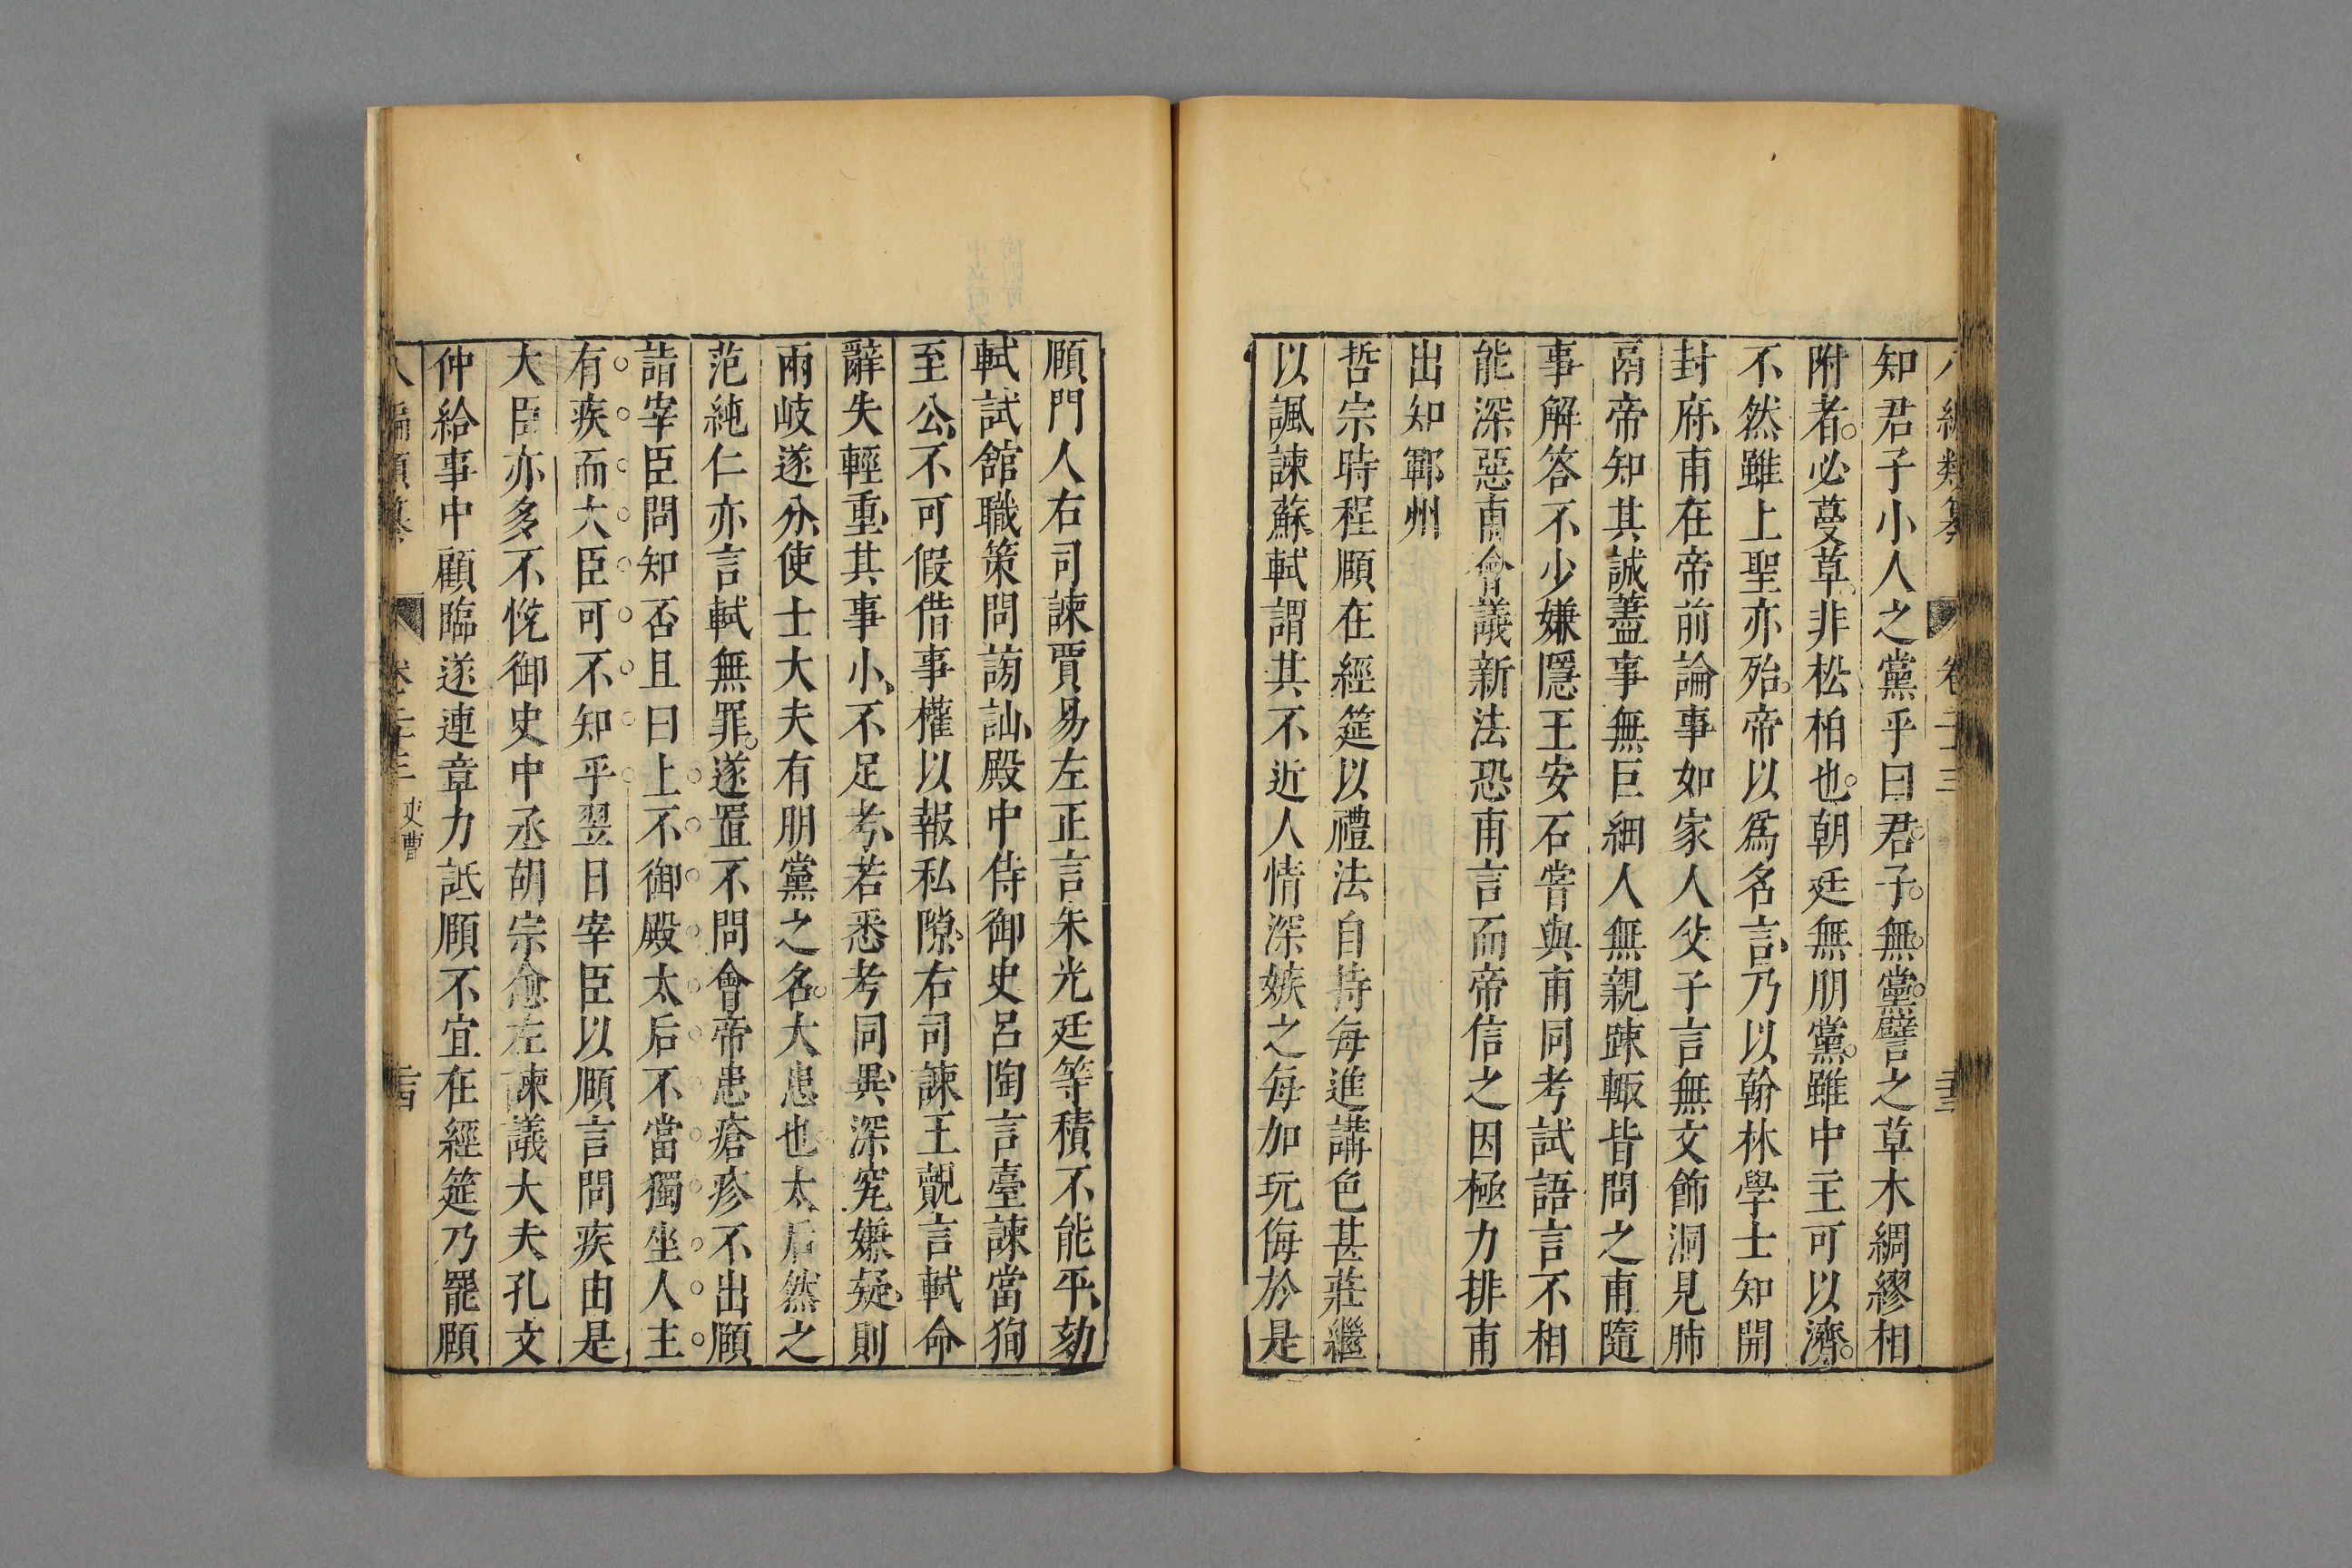 八編類纂 卷二十三
知君子小人之黨乎曰君子無黨譬之草木綢繆相
附者必蔓草非松柏也朝廷無朋黨雖中主可以濟
不然雖上聖亦殆帝以爲名言乃以翰林學士知開
封府甫在帝前論事如家人父子言無文飾洞見肺
鬲帝知其誠藎事無巨細人無親踈輙皆問之甫隨
事解答不少嫌隱王安石嘗與甫同考試語言不相
能深惡甫會議新法恐甫言而帝信之因極力排甫
出知鄆州
哲宗時程頤在經筵以禮法自持每進講色甚莊繼
以諷諫蘇軾謂其不近人情深嫉之每加玩侮於是
頤門人右司諫賈易左正言朱光廷等積不能平劾
軾試館職策問謗訕殿中侍御史呂陶言臺諫當狥
至公不可假借事權以報私隙右司諫王覿言軾命
辭失輕重其事小不足考若悉考同異深究嫌疑則
兩岐遂分使士大夫有朋黨之名大患也太后然之
范純仁亦言軾無罪遂置不問會帝患瘡疹不出頤
詣宰臣問知否且曰上不御殿太后不當獨坐人主
有疾而大臣可不知乎翌日宰臣以頤言問疾由是
大臣亦多不悅御史中丞胡宗愈左諫議大夫孔文
仲給事中顧臨遂連章力詆頤不宜在經筵乃罷頤
八編類纂 卷二十三 吏曹 二十四